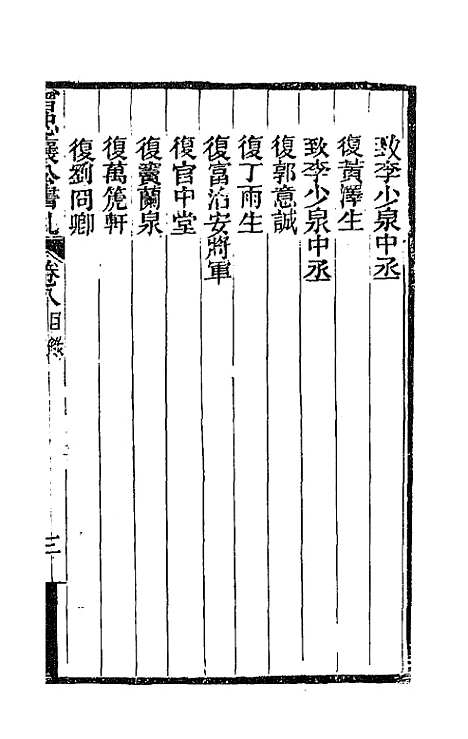 致李少泉中丞
復黃澤生
致李少泉中丞
復郭意誠
復丁雨生
復富治安將軍
復官中堂
復竇蘭泉
復萬篪軒
復劉冏卿
卷八目錄
三